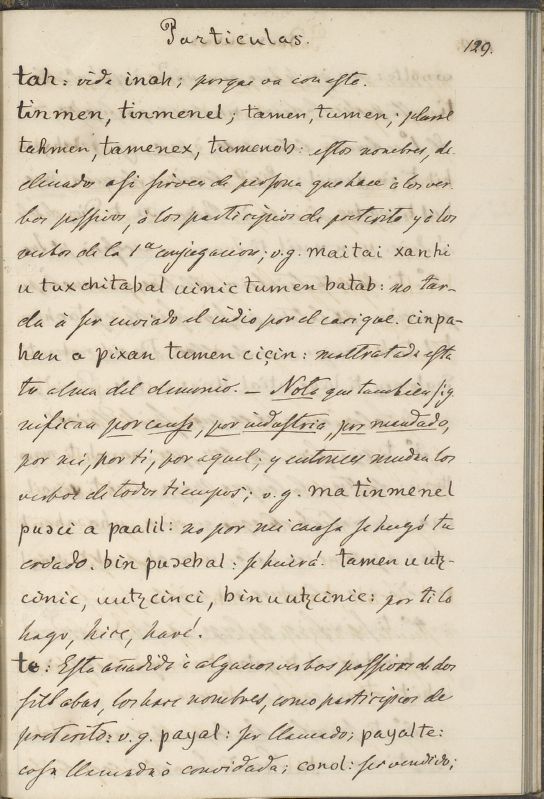 Particulas.
129.
tah: vide inah; porque va con este.
tinmen, tinmenel; tamen, tumen; plural
tahmen, tamenex, tumenob: estos nombres, de-
clinados asi sirven de persona que hace á los ver-
bos passivos, á los participios de preterito y á los
verbos de la 1ª conjugacion; v.g. maitai xanhi
u tuxchitabal uinic tumen batab: no tar-
da á ser enviado el indio por el casique. cinpa-
han a pixan tumen ciçin: maltratada esta
tu alma del demonio. — Nota que tambien sig-
nifican por causa, por industria, por mandado,
por mi, por ti, por aquel; y entonces mudan los
verbos de todos tiempos; v.g. ma tinmenel
puɔci a paalil: no por mi causa se huyó tu
criado. bin puɔebal: se huirá. tamen u utz-
cinic, uutzcinci, bin u utzcinic: por ti lo
hago, hice, haré.
te: Esta añadido á algunos verbos passivos de dos
sillabas, los hace nombres, como participios de
preterito: v.g. payal: ser llamado; payalte:
cosa llamada ó convidada; conol: ser vendido;